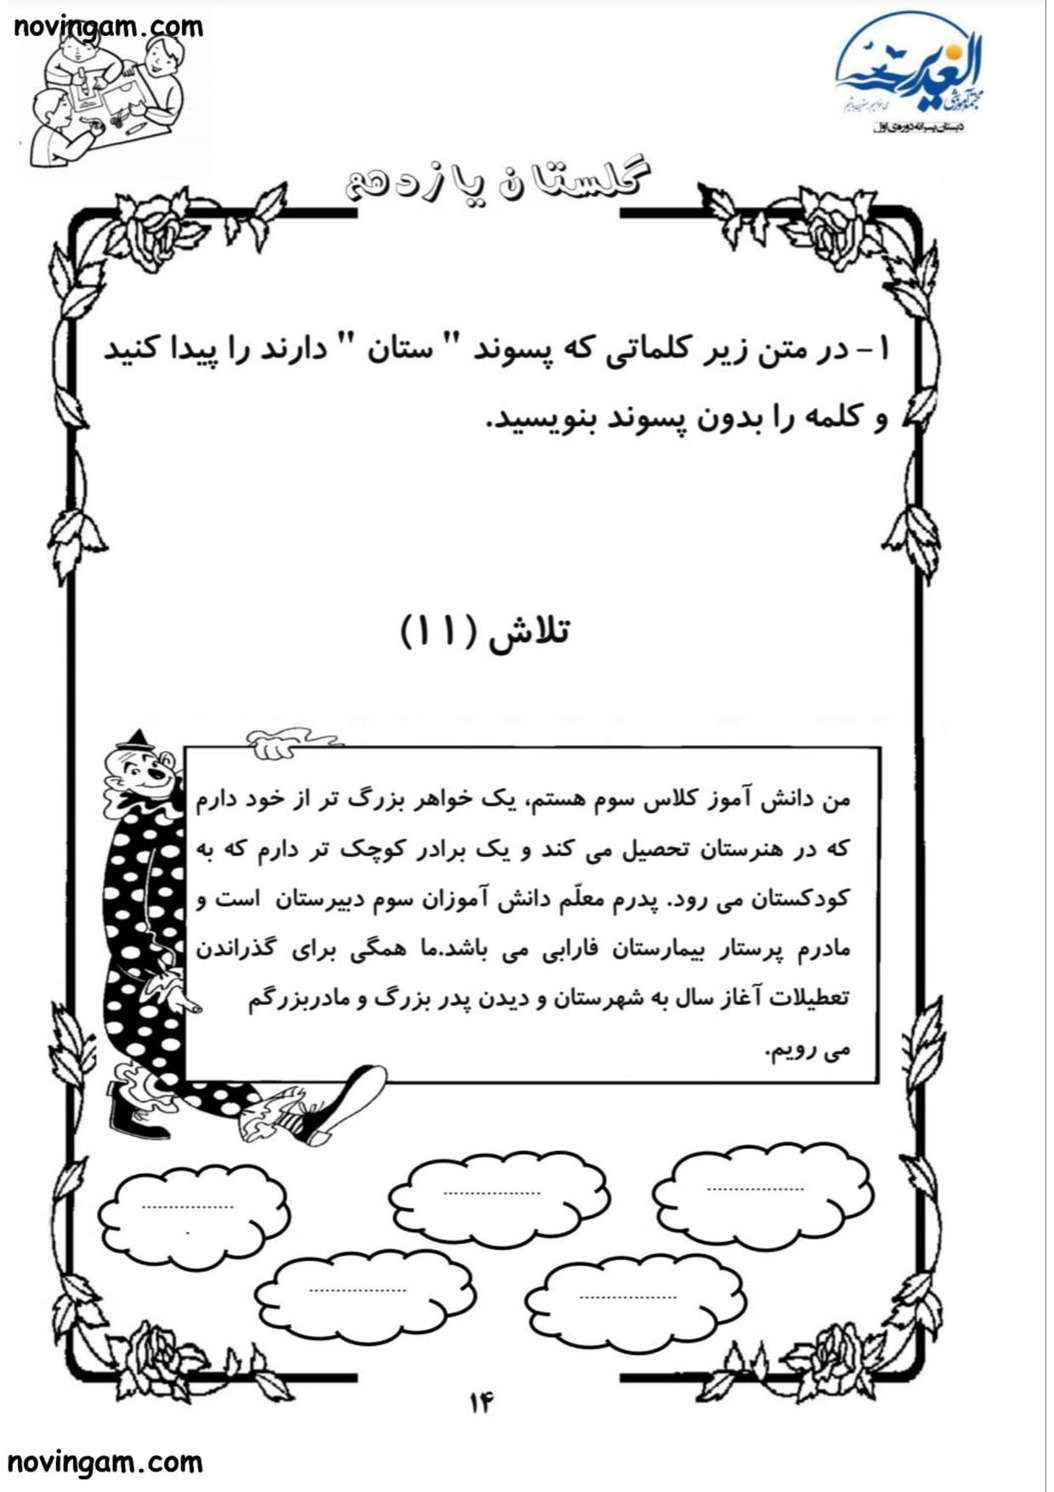 novingam.com
الغدیر
مجتمع آموزشی
دبستان پسرانه دوره‌ی اول
گلستان یازدهم
۱- در متن زیر کلماتی که پسوند " ستان " دارند را پیدا کنید
و کلمه را بدون پسوند بنویسید.
تلاش (۱۱)
من دانش آموز کلاس سوم هستم، یک خواهر بزرگ تر از خود دارم
که در هنرستان تحصیل می کند و یک برادر کوچک تر دارم که به
کودکستان می رود. پدرم معلّم دانش آموزان سوم دبیرستان است و
مادرم پرستار بیمارستان فارابی می باشد.ما همگی برای گذراندن
تعطیلات آغاز سال به شهرستان و دیدن پدر بزرگ و مادربزرگم
می رویم.
۱۴
novingam.com